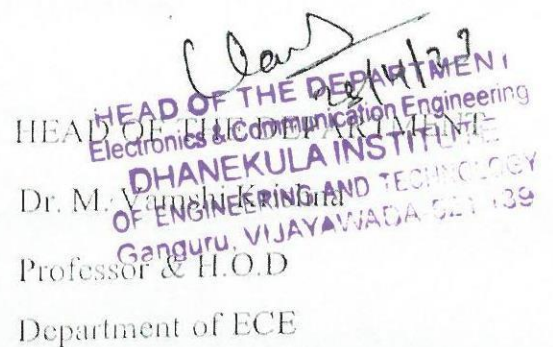 28/4/23
HEAD OF THE DEPARTMENT
Electronics & Communication Engineering
DHANEKULA INSTITUTE
OF ENGINEERING AND TECHNOLOGY
Ganguru, VIJAYAWADA-521 139
HEAD OF THE DEPARTMENT
Dr. M. Vamshi Krishna
Professor & H.O.D
Department of ECE